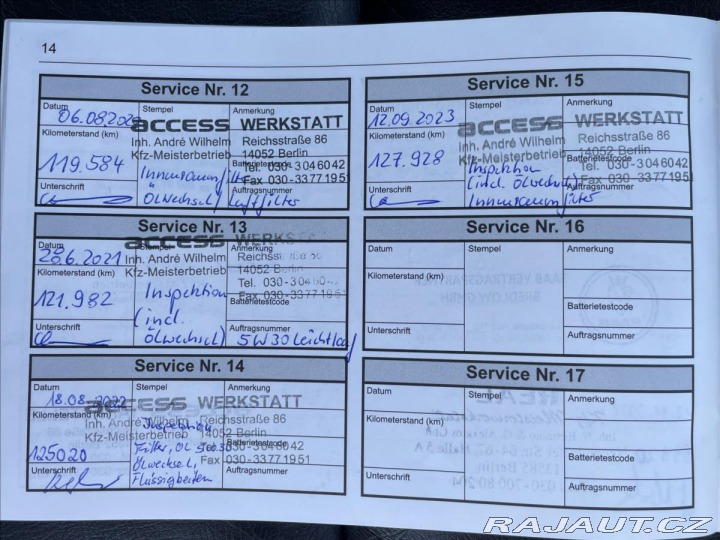 14
Service Nr. 12
Datum
Stempel
Anmerkung
06.08.2020
access WERKSTATT
Kilometerstand (km)
Inh. André Wilhelm Reichsstraße 86
Kfz-Meisterbetrieb 14052 Berlin
119.584
Batterietestcode
Tel. 030-3046042
Innenraumfilter
Fax 030-3377 1951
Unterschrift
Auftragsnummer
Ölwechsel, Luftfilter
Service Nr. 13
Datum
Stempel
access WERKST
28.6.2021
Inh. André Wilhelm Reichsstraße 86
Kilometerstand (km)
Kfz-Meisterbetrieb 14052 Berlin
Tel. 030-3046042
121.982
Inspektion
Fax 030-3377 1951
Batterietestcode
(incl.
Unterschrift
Auftragsnummer
Ölwechsel) 5W30 Leichtlauf
Service Nr. 14
Datum
Stempel
Anmerkung
18.08.2022
access WERKSTATT
Kilometerstand (km)
Inh. André Wilhelm Reichsstraße 86
Inspektion
Kfz-Meisterbetrieb 14052 Berlin
125020
Filter, Öl 5W30
Batterietestcode
Tel. 030-3046042
Ölwechsel,
Fax 030-3377 1951
Unterschrift
Auftragsnummer
Flüssigkeiten
Service Nr. 15
Datum
Stempel
Anmerkung
12.09.2023
access WERKSTATT
Kilometerstand (km)
Inh. André Wilhelm Reichsstraße 86
Kfz-Meisterbetrieb 14052 Berlin
127.928
Batterietestcode
Tel. 030-3046042
Inspektion
Fax 030-3377 1951
(incl. Ölwechsel)
Unterschrift
Auftragsnummer
Innenraumfilter
Service Nr. 16
Datum
Stempel
Anmerkung
Kilometerstand (km)
Batterietestcode
Unterschrift
Auftragsnummer
Service Nr. 17
Datum
Stempel
Anmerkung
Kilometerstand (km)
Batterietestcode
Unterschrift
Auftragsnummer
RAJAUT.CZ